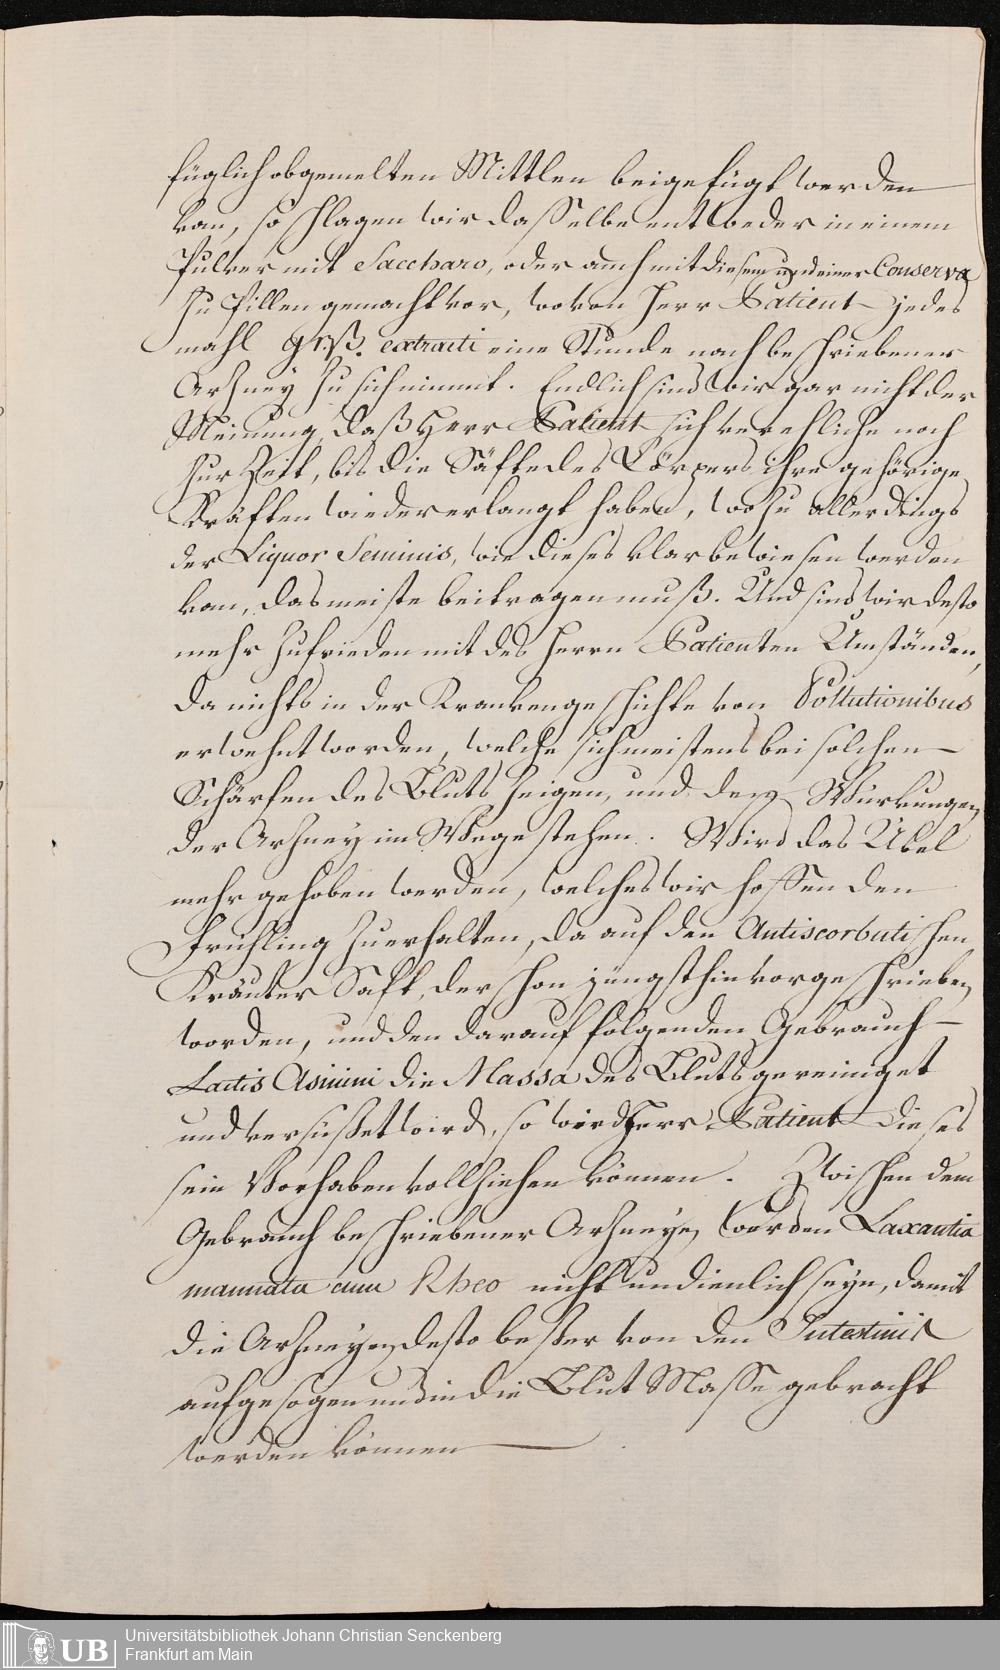 füglich obgemelten Mittlen beigefügt werden
kan, so schlagen wir dasselbe entweder in einem
Pulver mit Saccharo, oder auch mit diesem und einer Conserva
zu Pillen gemacht vor, wovon Herr Patient jedes
mahl gr.ß. extracti eine Stunde nach beschriebener
Arzney zu sich nimmt. Endlich sind wir gar nicht der
Meinung, daß Herr Patient sich verehliche noch
zur Zeit, bis die Säfte des Körpers ihre gehörige
Kräften wieder erlangt haben, wozu allerdings
der Liquor Seminis, wie dieses klar bewiesen werden
kan, das meiste beitragen muß. Und sind wir desto
mehr zufrieden mit des Herrn Patienten Umständen,
da nichts in der Krankengeschichte von Pollutionibus
erwehnt worden, welche sich meistens bei solchen
Schärfen des Bluts zeigen, und den Würkungen
der Arzney im Wege stehen. Wird das Übel
mehr gehoben werden, welches wir hoffen den
Frühling zu erhalten, da auf den Antiscorbutischen
Kräuter Saft, der schon jüngsthin vorgeschrieben
worden, und den darauf folgenden Gebrauch
Lactis Asinini die Massa des Bluts gereiniget
und versüßet wird, so wird Herr Patient dieses
sein Vorhaben vollziehen können. Zwischen dem
Gebrauch beschriebener Arzneyen werden Laxantia
mannata cum Rheo nicht undienlich seyn, damit
die Arzneyen desto besser von den Intestinis
aufgesogen und in die Blut Masse gebracht
werden können
UB Universitätsbibliothek Johann Christian Senckenberg
Frankfurt am Main